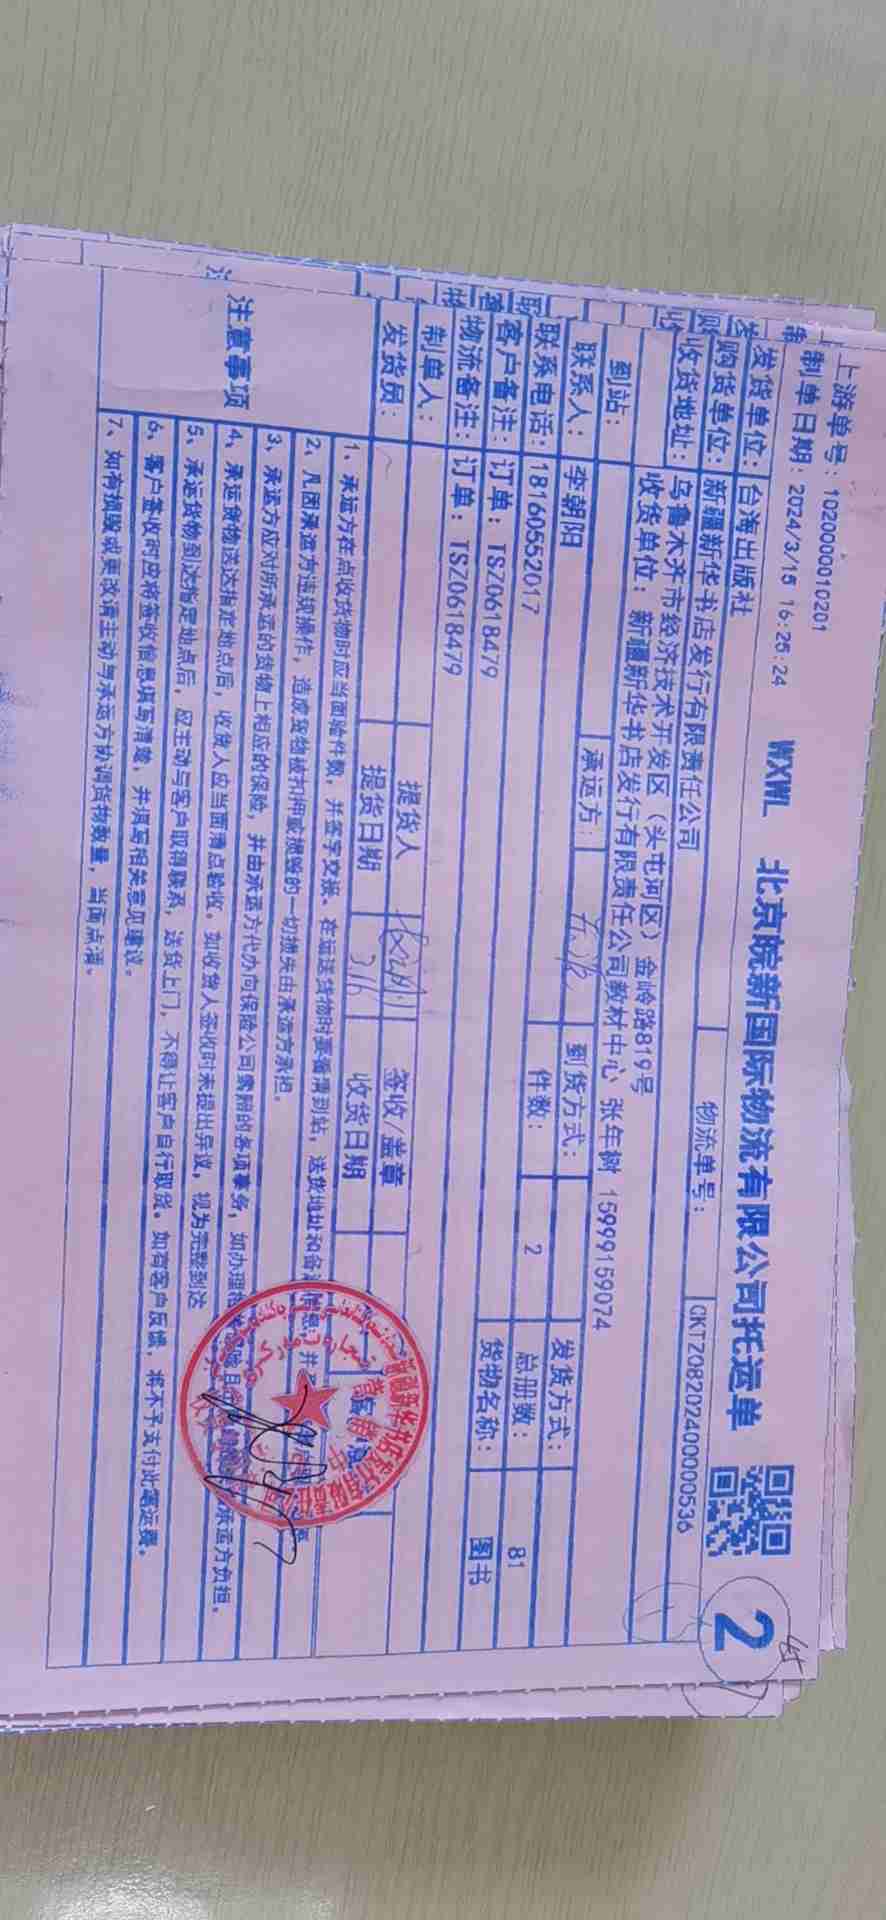 上游单号：1020000010201
制单日期：2024/3/15 16:25:24
WXWL 北京皖新国际物流有限公司托运单
2
发货单位：台海出版社
物流单号：CKTZ08202400000536
购货单位：新疆新华书店发行有限责任公司
收货地址：乌鲁木齐市经济技术开发区（头屯河区）金岭路819号
收货单位：新疆新华书店发行有限责任公司教材中心 张年树 15999159074
到站：
承运方：
到货方式：
发货方式：
联系人：李朝阳
件数：2
总册数：81
联系电话：18160552017
货物名称：图书
客户备注：订单：TSZ0618479
物流备注：订单：TSZ0618479
制单人：
提货人
签收/盖章
发货员：
提货日期 3.16
收货日期
注意事项
1、承运方在点收货物时应当面验件数，并签字交接。在运送货物时要看清到站，送货地址和备注信息，并
2、凡因承运方违规操作，造成货物被扣押或损毁的一切损失由承运方承担。
3、承运方应对所承运的货物上相应的保险，并由承运方代办向保险公司索赔的各项事务，如办理 承运方负担。
4、承运货物送达指定地点后，收货人应当面清点验收。如收货人签收时未提出异议，视为完整到达
5、承运货物到达指定地点后，应主动与客户取得联系，送货上门，不得让客户自行取货。如有客户反馈，将不予支付此笔运费。
6、客户签收时应将签收信息填写清楚，并填写相关意见建议。
7、如有损毁或更改请主动与承运方协调货物数量，当面点清。